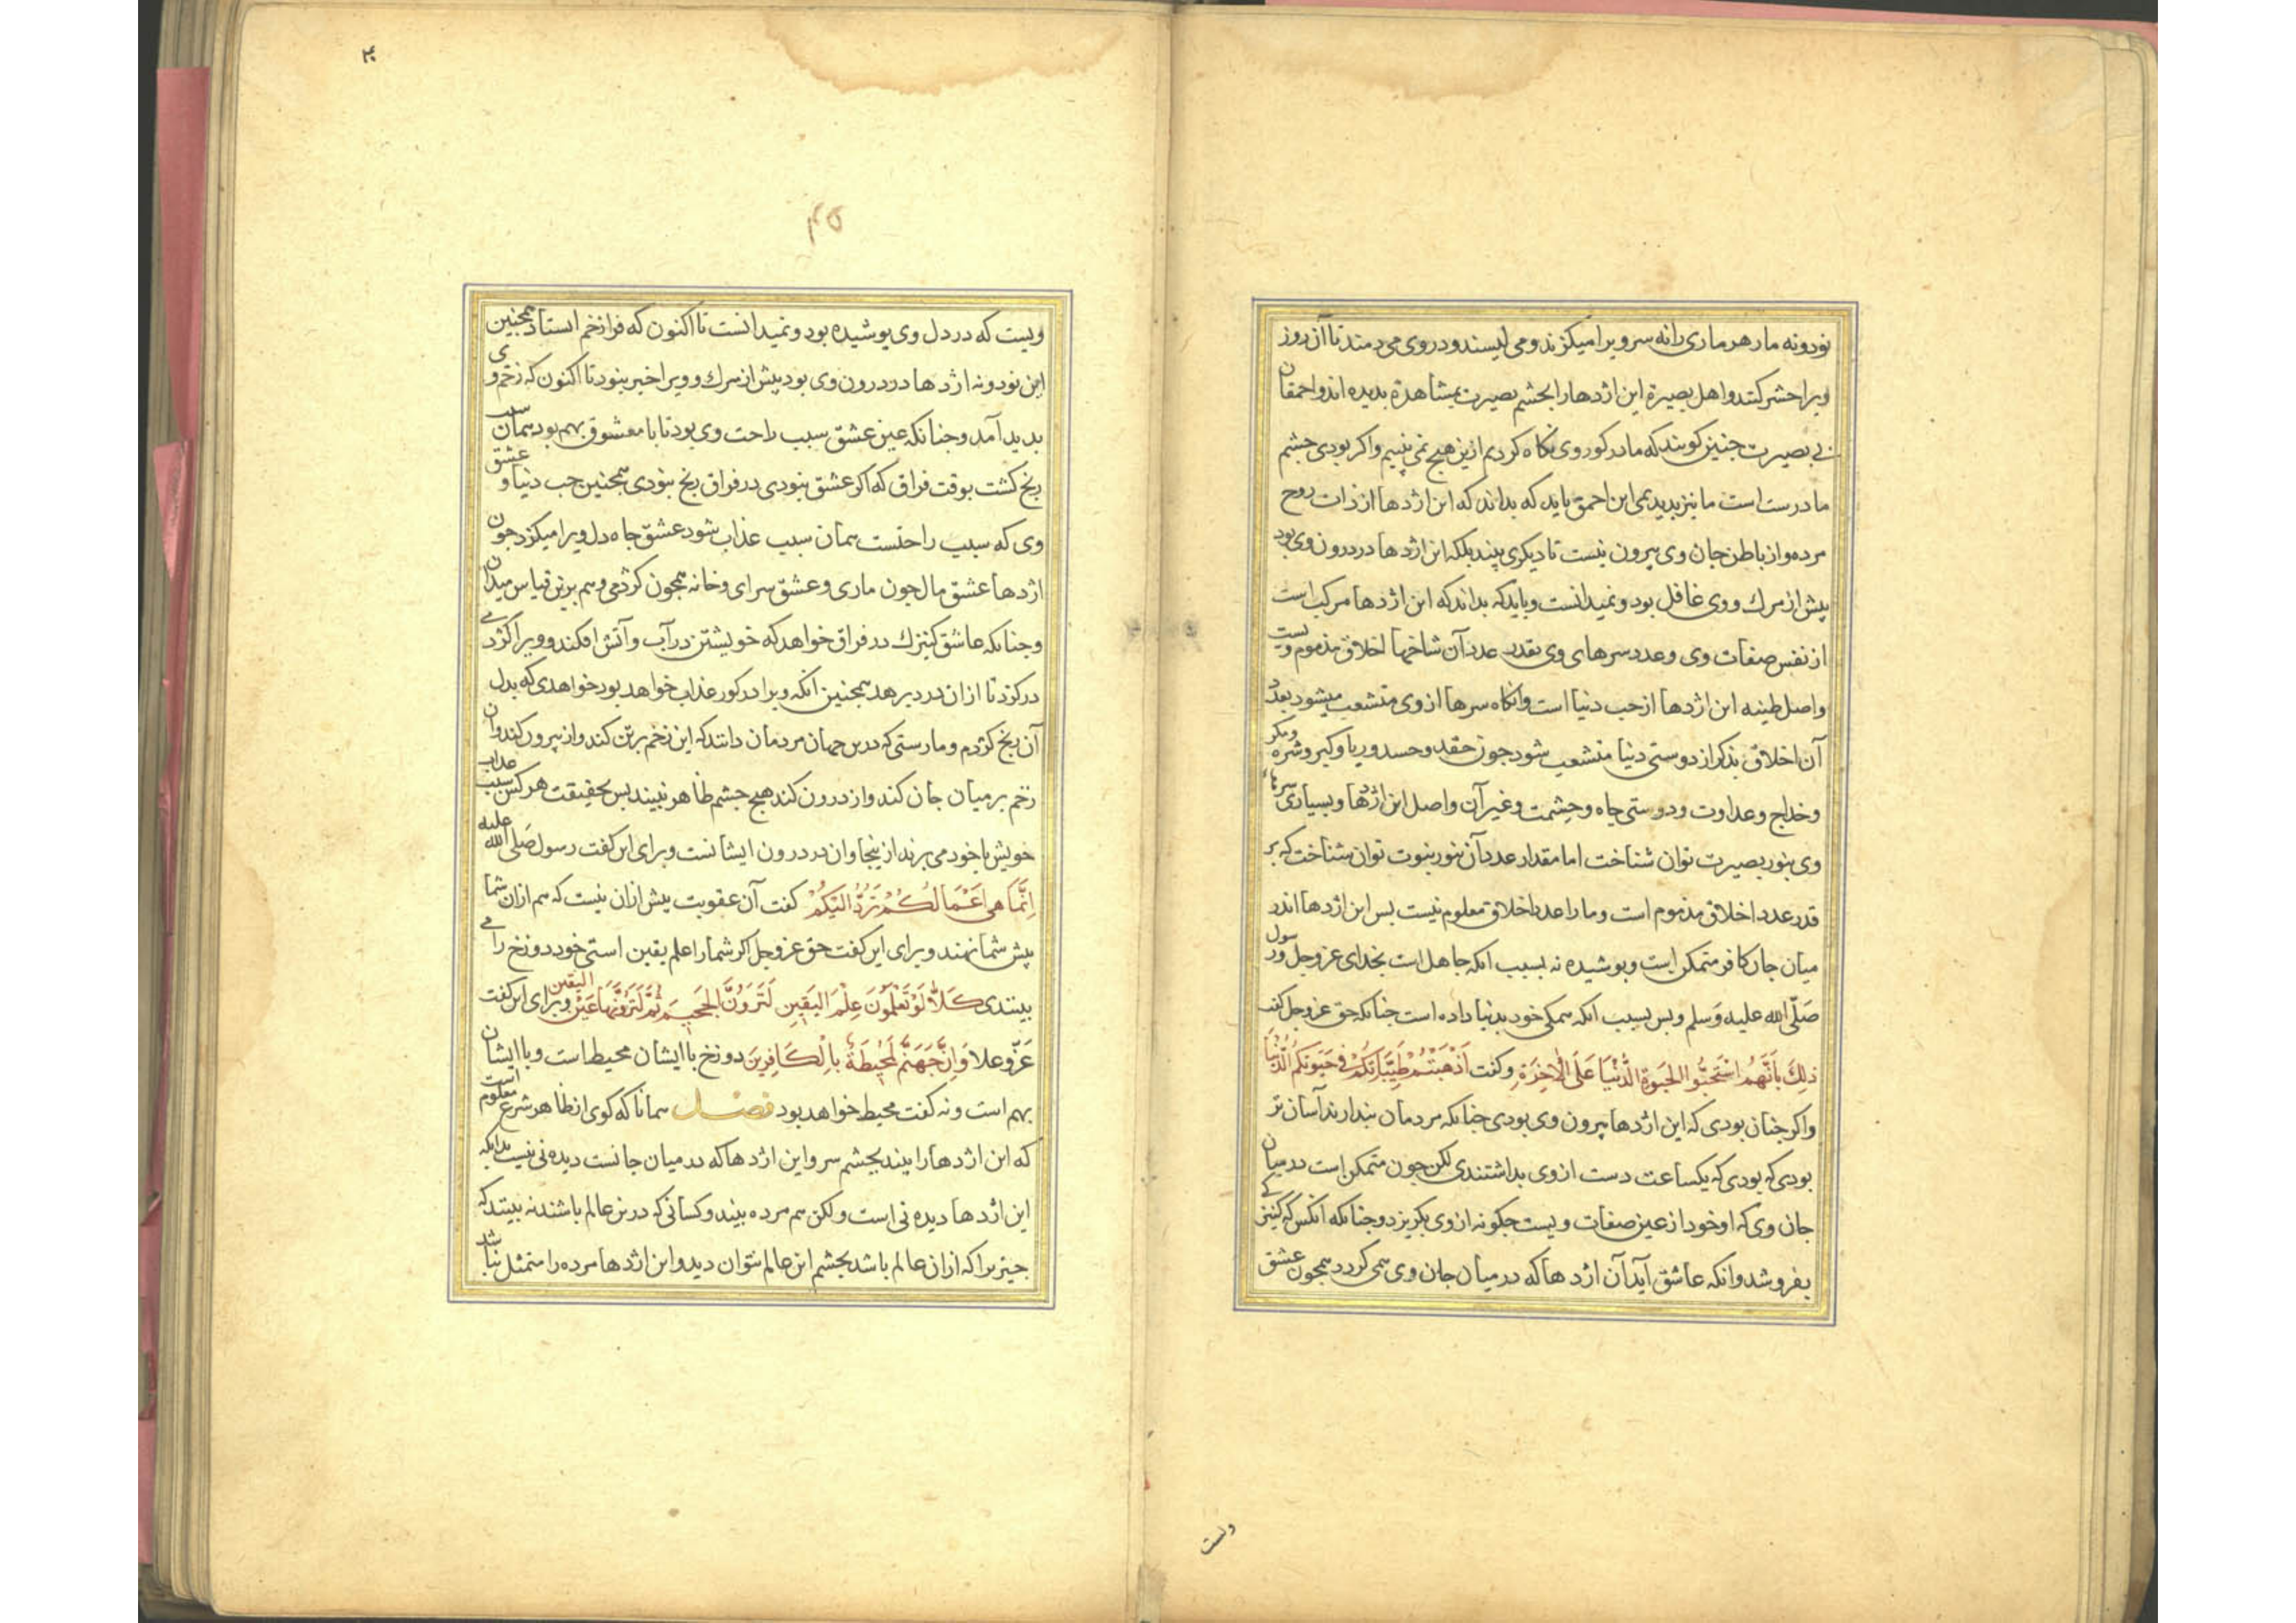 نودونه مار هر ماری را نه سر ویرا میکزند و می لیسند و در وی می دمند تا آن روز
ویرا حشر کنند و اهل بصیرة این اژدها را بجشم بصیرت بمشاهدة بدیده اند و احمقان
بی بصیرت جنین کویند که ما در کور وی نکاه کردیم ازین هیچ نمی بینیم و اکر بودی جشم
ما درست است ما نیز بدیدیمی این احمق باید که بداند که این اژدها از ذات روح
مرده و از باطن جان وی بیرون نیست تا دیکری بیند بلکه این اژدها در درون وی بود
پیش از مرك و وی غافل بود و نمیدانست و باید که بداند که این اژدها مرکب است
از نفس صفات وی و عدد سرهای وی بقدر عدد آن شاخها اخلاق مذموم ویست
واصل طینه این اژدها از حب دنیا است و انکاه سرها از وی منشعب میشود بعدد
آن اخلاق بذکر از دوستی دنیا منشعب شود جون حقد و حسد و ریا و کبر و شره و مکر
و خداج و عداوت و دوستی جاه و حشمت و غیر آن واصل این اژدها و بسیاری سرها
وی بنور بصیرت توان شناخت اما مقدار عدد آن بنور نبوت توان شناخت که بر
قدر عدد اخلاق مذموم است و ما را عدد اخلاق معلوم نیست بس این اژدها اندر
میان جان کافر متمکن است و بوشیده نه بسبب انکه جاهل است بخدای عزوجل و رسول
صَلّی الله علیه وَسلم و بس بسبب انکه همکی خود بدنیا داده است جنانکه حق عزوجل کفت
ذلِكَ بِاَنَّهُمُ اسْتَحَبُّوا الحَیٰوةَ الدُّنْیَا عَلَی الْاٰخِرَةِ وکفت اَذْهَبْتُمْ طَیِّبَاتِكُمْ فِی حَیٰوتِكُمُ الدُّنْیَا
واکر جنان بودی که این اژدها بیرون وی بودی جنانکه مردمان بندارند آسان تر
بودی که بودی که یکساعت دست از وی بداشتندی لکن جون متمکن است در میان
جان وی که او خود از عین صفات ویست جکونه از وی بکریزد و جنانکه انکس که کنیزکی
بفروشد وانکه عاشق آید آن اژدها که در میان جان وی می کردد همجون عشق
ویست
۴۰
۴۵
ویست که در دل وی پوشیده بود و نمیدانست تا اکنون که فرا زخم استاد همجنین
این نودونه اژدها در درون وی بود بیش از مرك و ویرا خبر نبود تا اکنون که زخم وی
بدید آمد و جنانکه عین عشق سبب راحت وی بود تا با معشوق بهم بود همان سبب
رنج کشت بوقت فراق که اکر عشق نبودی در فراق رنج نبودی همجنین حب دنیا و عشق
وی که سبب راحتست همان سبب عذاب شود عشق جاه دل ویرا میکزد جون
اژدها عشق مال جون ماری و عشق سرای و خانه همجون کژدمی و هم برین قیاس میدان
و جنانکه عاشق کنیزك در فراق خواهد که خویشتن در آب و آتش افکند و ویرا کژدمی
در کزد تا از ان درد برهد همجنین انکه ویرا در کور عذاب خواهد بود خواهدی که بدل
آن رنج کژدم و مارستی که درین جهان مردمان دانند که این زخم بر تن کند و از بیرون کند و آن
زخم بر میان جان کند و از درون کند هیج جشم ظاهر نبیند بس بحقیقت هر کس سبب عذاب
خویش با خود می برند از ینجا و ان در درون ایشانست و برای این کفت رسول صَلی الله علیه
اِنَّمَا هِیَ اَعْمَالُکُمْ تُرَدُّ اِلَیْکُمْ کفت آن عقوبت بیش ازان نیست که هم ازان شما
پیش شما نهند و برای این کفت حق عزوجل اکر شما را علم یقین استی خود دوزخ را می
بینندی کَلَّا لَوْ تَعْلَمُوْنَ عِلْمَ الیَقِینِ لَتَرَوُنَّ الجَحِیمَ ثُمَّ لَتَرَوُنَّهَا عَیْنَ الیَقین و برای این کفت
عَزّ و علا وَاِنَّ جَهَنَّمَ لَمُحِیطَةٌ بِالْکَافِرِینَ دوزخ با ایشان محیط است و با ایشان
بهم است و نه کفت محیط خواهد بود فصل همانا که کوی از ظاهر شرع معلوم است
که این اژدها را بیند بجشم سر و این اژدها که در میان جانست دیده نی نیست بدانکه
این اژدها دیده نی است ولکن هم مرده بیند و کسانی که درین عالم باشند نه بینند که
جیزیرا که ازان عالم باشد بجشم این عالم نتوان دید و این اژدها مرده را متمثل باشد